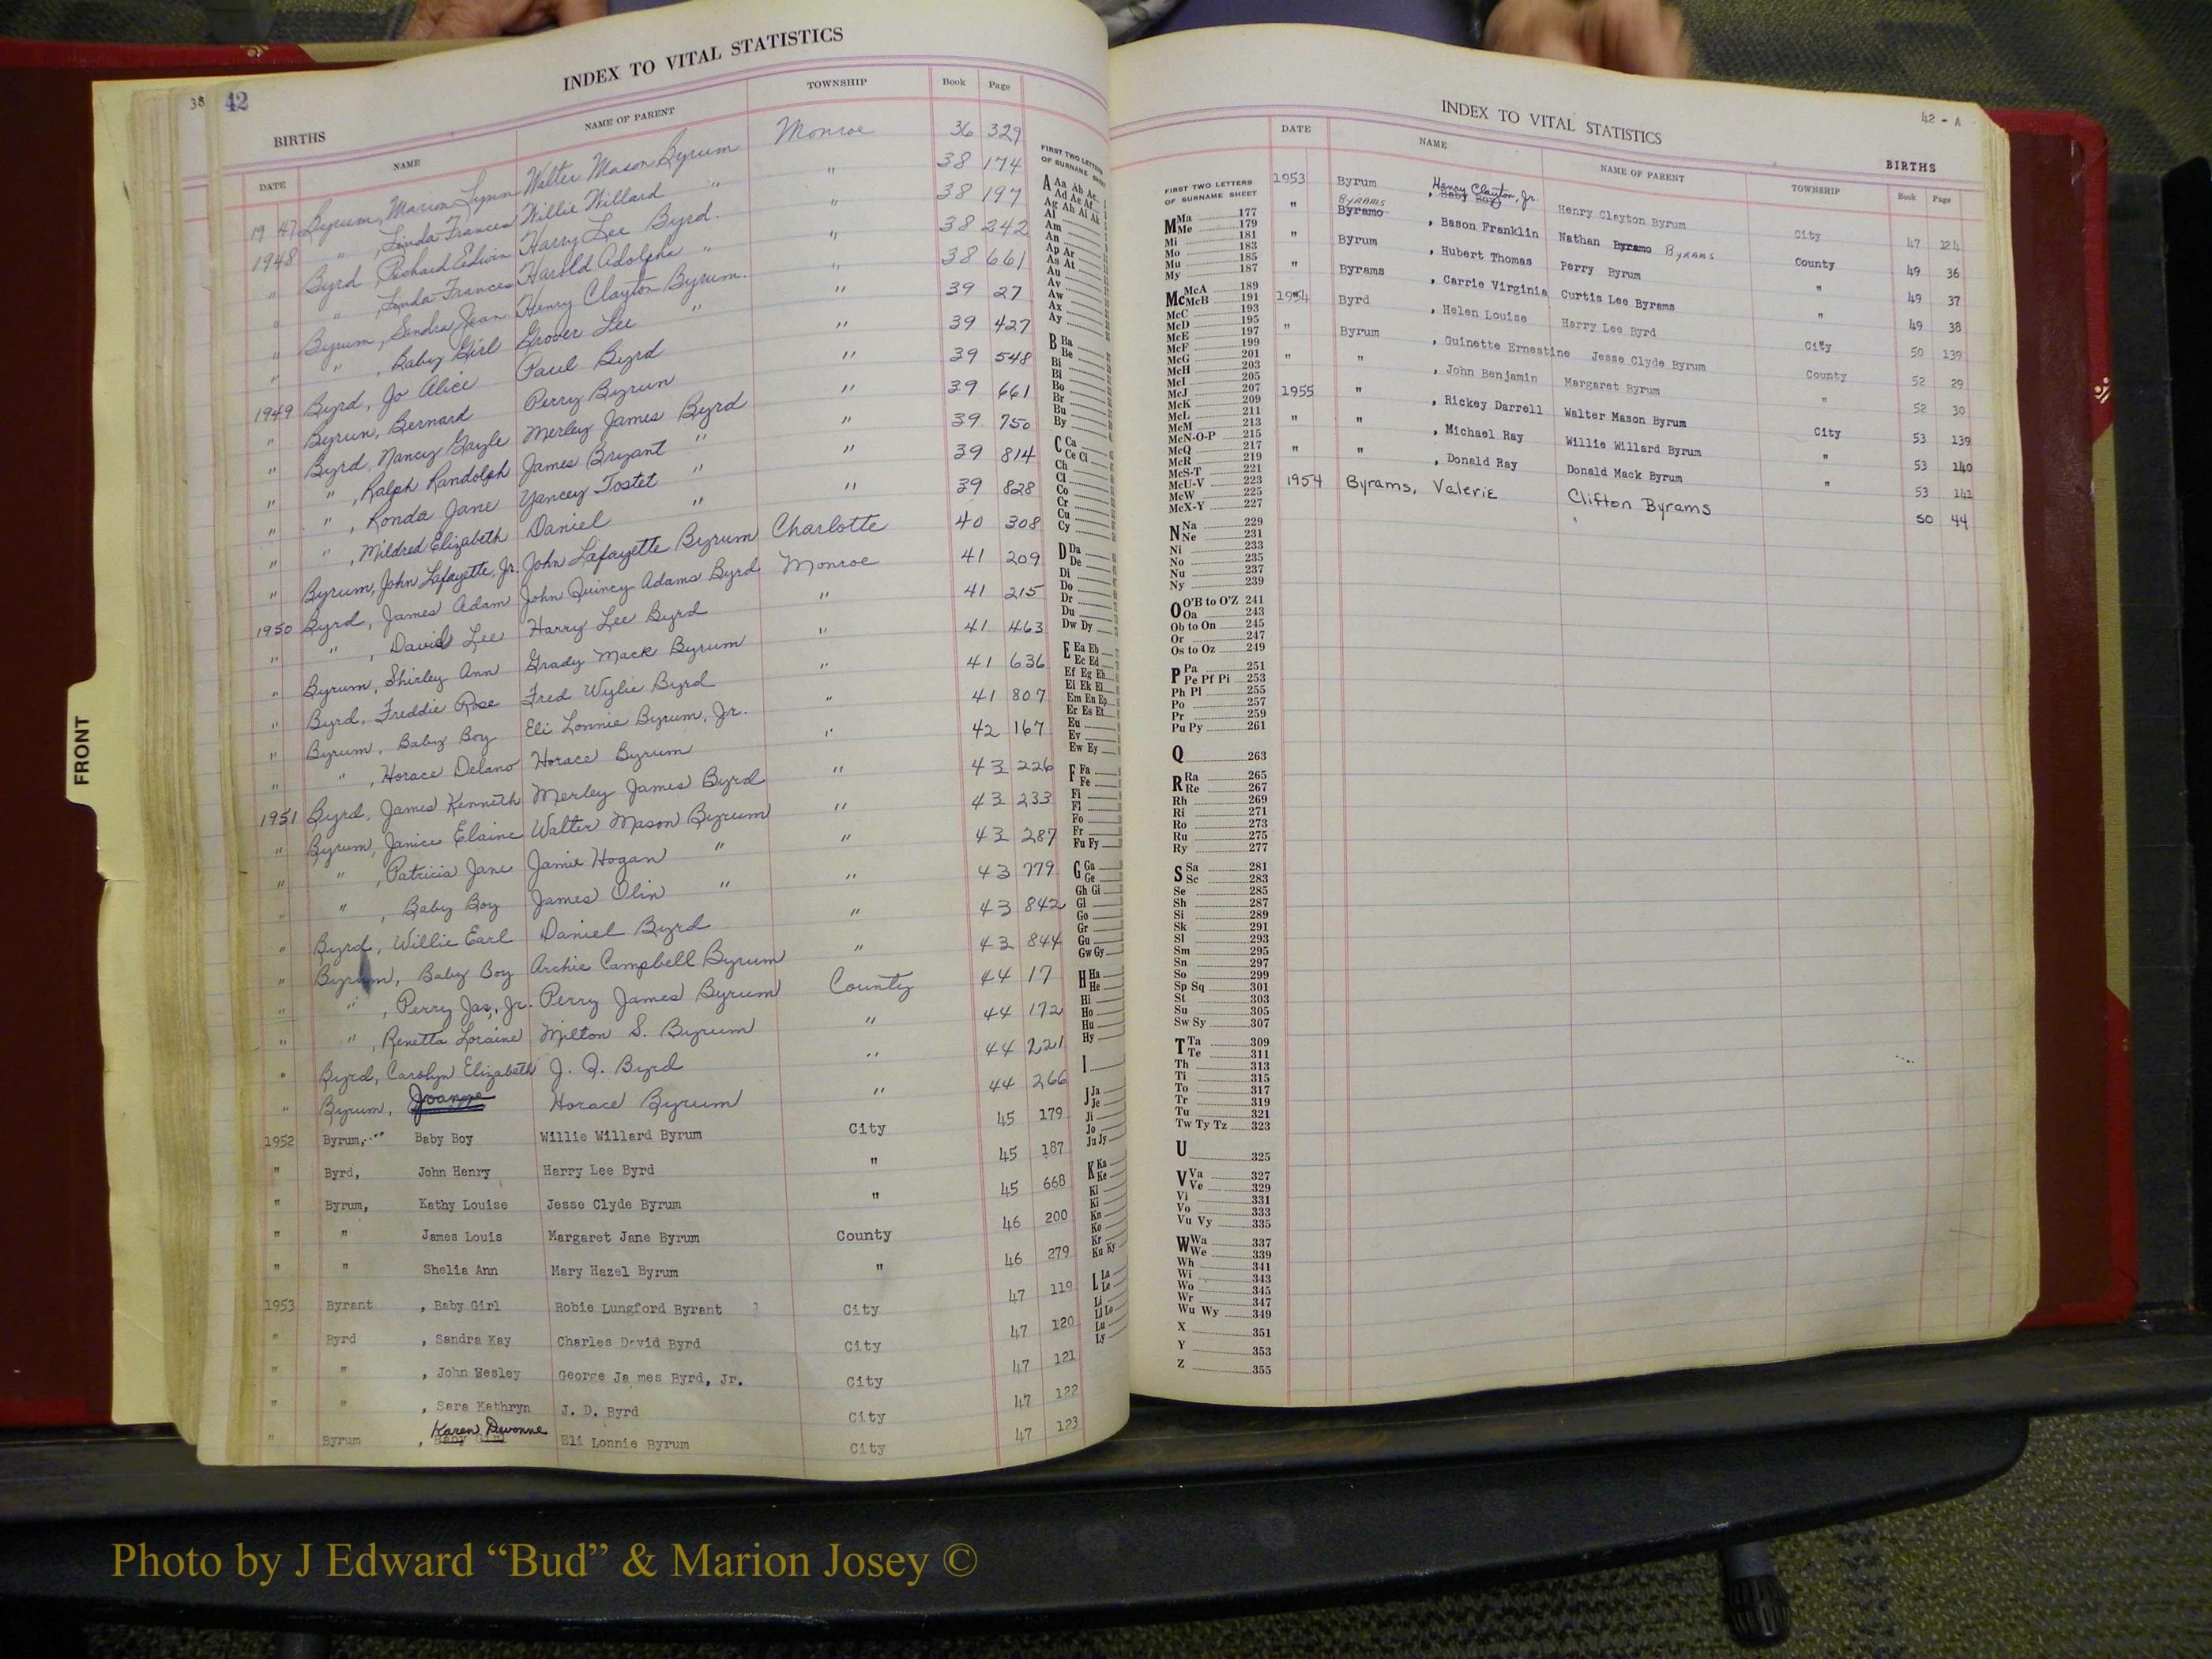 38 42
INDEX TO VITAL STATISTICS
BIRTHS
DATE NAME NAME OF PARENT TOWNSHIP Book Page
1947 Byrum, Marion Lynn Walter Mason Byrum Monroe 36 329
" " , Linda Frances Willie Willard " " 38 174
1948 Byrd, Richard Edwin Harry Lee Byrd. 38 197
" " , Linda Frances Harold Adolphe " " 38 242
" Byrum, Sandra Jean Henry Clayton Byrum. " 38 661
" " , Baby Girl Grover Lee " " 39 27
1949 Byrd, Jo Alice Paul Byrd " 39 427
" Byrun, Bernard Perry Byrun " 39 548
" Byrd, Nancy Gayle Merley James Byrd " 39 661
" " , Ralph Randolph James Bryant " " 39 750
" " , Ronda Jane Yancey Tostet " " 39 814
" " , Mildred Elizabeth Daniel " " 39 828
" Byrum, John Lafayette, Jr. John Lafayette Byrum Charlotte 40 308
1950 Byrd, James Adam John Quincy Adams Byrd Monroe 41 209
" " , David Lee Harry Lee Byrd " 41 215
" Byrum, Shirley Ann Grady Mack Byrum " 41 463
" Byrd, Freddie Rose Fred Wylie Byrd " 41 636
" Byrum, Baby Boy Eli Lonnie Byrum, Jr. " 41 807
" " , Horace Delano Horace Byrum " 42 167
1951 Byrd, James Kenneth Merley James Byrd " 43 226
" Byrum, Janice Elaine Walter Mason Byrum " 43 233
" " , Patricia Jane Jamie Hogan " " 43 287
" " , Baby Boy James Olin " " 43 779
" Byrd, Willie Earl Daniel Byrd " 43 842
" Byrum, Baby Boy Archie Campbell Byrum " 43 844
" " , Perry Jas., Jr. Perry James Byrum County 44 17
" " , Renetta Loraine Milton S. Byrum " 44 172
" Byrd, Carolyn Elizabeth J. Q. Byrd " 44 221
" Byrum, Joanne Horace Byrum " 44 266
1952 Byrum, Baby Boy Willie Willard Byrum City 45 179
" Byrd, John Henry Harry Lee Byrd " 45 187
" Byrum, Kathy Louise Jesse Clyde Byrum " 45 668
" " James Louis Margaret Jane Byrum County 46 200
" " Shelia Ann Mary Hazel Byrum " 46 279
1953 Byrant , Baby Girl Robie Lungford Byrant City 47 119
" Byrd , Sandra Kay Charles David Byrd City 47 120
" " , John Wesley George Ja mes Byrd, Jr. City 47 121
" " , Sara Kathryn J. D. Byrd City 47 122
Karen Devonne
" Byrum , Baby Girl Eli Lonnie Byrum City 47 123
FRONT
FIRST TWO LETTERS
OF SURNAME SHEET
A Aa Ab Ac
Ad Ae Af
Ag Ah Ai Ak
Al
Am
An
Ap Ar
As At
Au
Av
Aw
Ax
Ay
B Ba
Be
Bi
Bl
Bo
Br
Bu
By
C Ca
Ce Ci
Ch
Cl
Co
Cr
Cu
Cy
D Da
De
Di
Do
Dr
Du
Dw Dy
E Ea Eb
Ec Ed
Ef Eg Eh
Ei Ek El
Em En Ep
Er Es Et
Eu
Ev
Ew Ey
F Fa
Fe
Fi
Fl
Fo
Fr
Fu Fy
G Ga
Ge
Gh Gi
Gl
Go
Gr
Gu
Gw Gy
H Ha
He
Hi
Ho
Hu
Hy
I
J Ja
Je
Ji
Jo
Ju Jy
K Ka
Ke
Ki
Kl
Kn
Ko
Kr
Ku Ky
L La
Le
Li
Ll Lo
Lu
Ly
INDEX TO VITAL STATISTICS
42 - A
BIRTHS
DATE NAME NAME OF PARENT TOWNSHIP Book Page
1953 Byrum , Henry Clayton, Jr. Baby Boy Henry Clayton Byrum City 47 124
" BYRAMS Byramo , Bason Franklin Nathan Byramo BYRAMS County 49 36
" Byrum , Hubert Thomas Perry Byrum " 49 37
" Byrams , Carrie Virginia Curtis Lee Byrams " 49 38
1954 Byrd , Helen Louise Harry Lee Byrd City 50 139
" Byrum , Guinette Ernestine Jesse Clyde Byrum County 52 29
" " , John Benjamin Margaret Byrum " 52 30
1955 " , Rickey Darrell Walter Mason Byrum City 53 139
" " , Michael Ray Willie Willard Byrum " 53 140
" " , Donald Ray Donald Mack Byrum " 53 141
1954 Byrams, Valerie Clifton Byrams 50 44
FIRST TWO LETTERS
OF SURNAME SHEET
M Ma 177
Me 179
Mi 181
Mo 183
Mu 185
My 187
Mc McA 189
McB 191
McC 193
McD 195
McE 197
McF 199
McG 201
McH 203
McI 205
McJ 207
McK 209
McL 211
McM 213
McN-O-P 215
McQ 217
McR 219
McS-T 221
McU-V 223
McW 225
McX-Y 227
N Na 229
Ne 231
Ni 233
No 235
Nu 237
Ny 239
O O'B to O'Z 241
Oa 243
Ob to On 245
Or 247
Os to Oz 249
P Pa 251
Pe Pf Pi 253
Ph Pl 255
Po 257
Pr 259
Pu Py 261
Q 263
R Ra 265
Re 267
Rh 269
Ri 271
Ro 273
Ru 275
Ry 277
S Sa 281
Sc 283
Se 285
Sh 287
Si 289
Sk 291
Sl 293
Sm 295
Sn 297
So 299
Sp Sq 301
St 303
Su 305
Sw Sy 307
T Ta 309
Te 311
Th 313
Ti 315
To 317
Tr 319
Tu 321
Tw Ty Tz 323
U 325
V Va 327
Ve 329
Vi 331
Vo 333
Vu Vy 335
W Wa 337
We 339
Wh 341
Wi 343
Wo 345
Wr 347
Wu Wy 349
X 351
Y 353
Z 355
Photo by J Edward “Bud” & Marion Josey ©